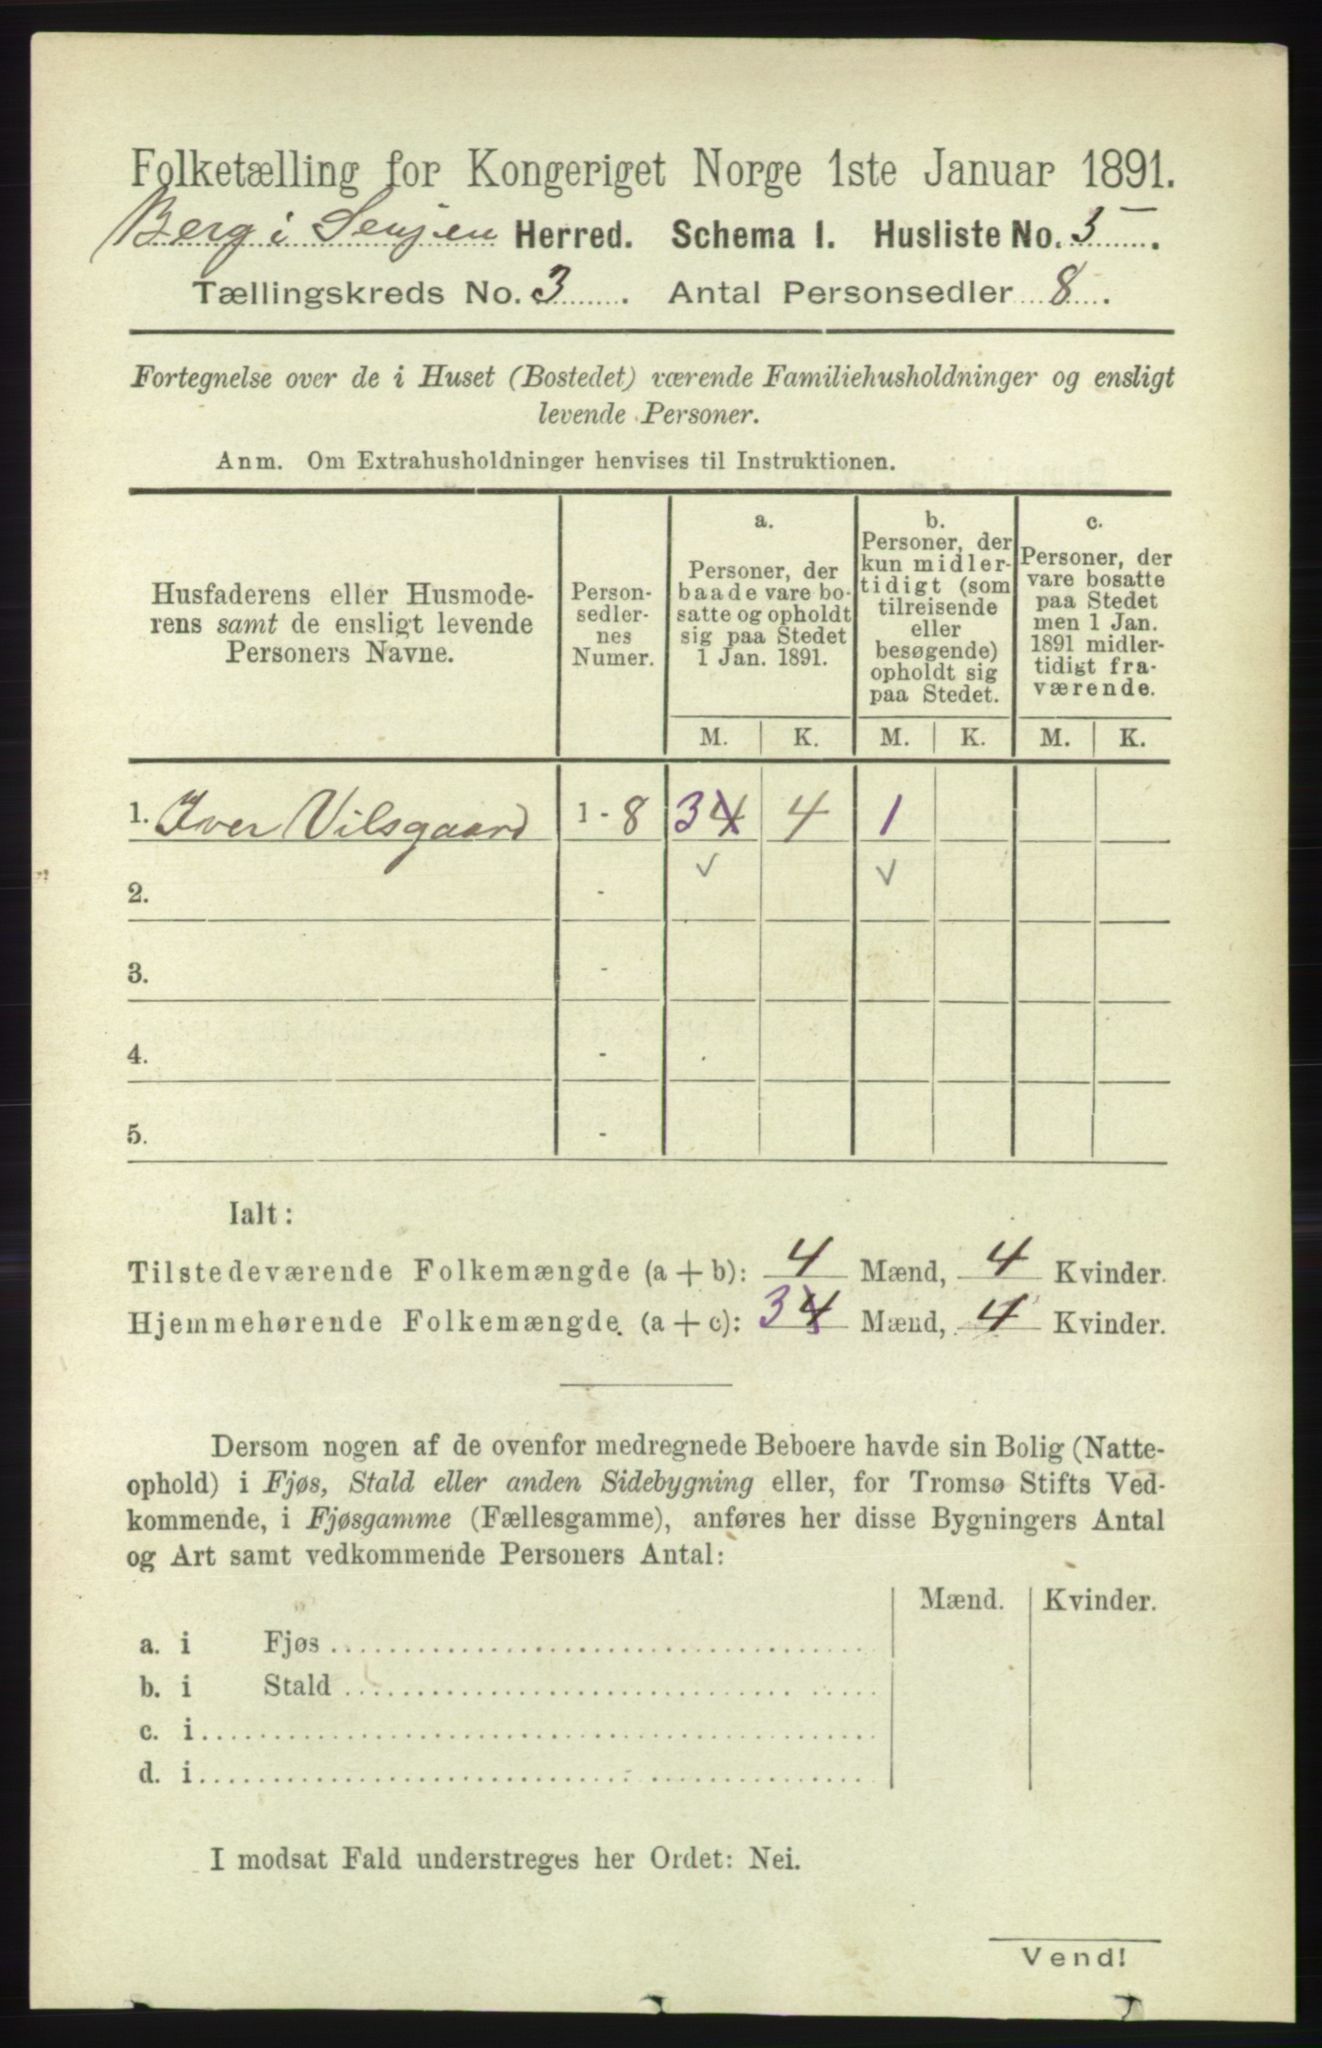 Folketælling for Kongeriget Norge 1ste Januar 1891.
Berg i Senjen Herred. Schema I. Husliste No. 5.
Tællingskreds No. 3. Antal Personsedler 8.
Fortegnelse over de i Huset (Bostedet) værende Familiehusholdninger og ensligt
levende Personer.
Anm. Om Extrahusholdninger henvises til Instruktionen.
Husfaderens eller Husmode-
rens samt de ensligt levende
Personers Navne.
Person-
sedler-
nes
Numer.
a.
Personer, der
baade vare bo-
satte og opholdt
sig paa Stedet
1 Jan. 1891.
b.
Personer, der
kun midler-
tidigt (som
tilreisende
eller
besøgende)
opholdt sig
paa Stedet.
c.
Personer, der
vare bosatte
paa Stedet
men 1 Jan.
1891 midler-
tidigt fra-
værende.
M. K. M. K. M. K.
1. Iver Vilsgaard 1 - 8 3 4 4 1
2. - ✓ ✓
3. -
4. -
5. -
Ialt:
Tilstedeværende Folkemængde (a + b): 4 Mænd, 4 Kvinder.
Hjemmehørende Folkemængde. (a + c): 3 4 Mænd, 4 Kvinder.
Dersom nogen af de ovenfor medregnede Beboere havde sin Bolig (Natte-
ophold) i Fjøs, Stald eller anden Sidebygning eller, for Tromsø Stifts Ved-
kommende, i Fjøsgamme (Fællesgamme), anføres her disse Bygningers Antal
og Art samt vedkommende Personers Antal:
Mænd. Kvinder.
a. i Fjøs
b. i Stald
c. i
d. i
I modsat Fald understreges her Ordet: Nei.
Vend!